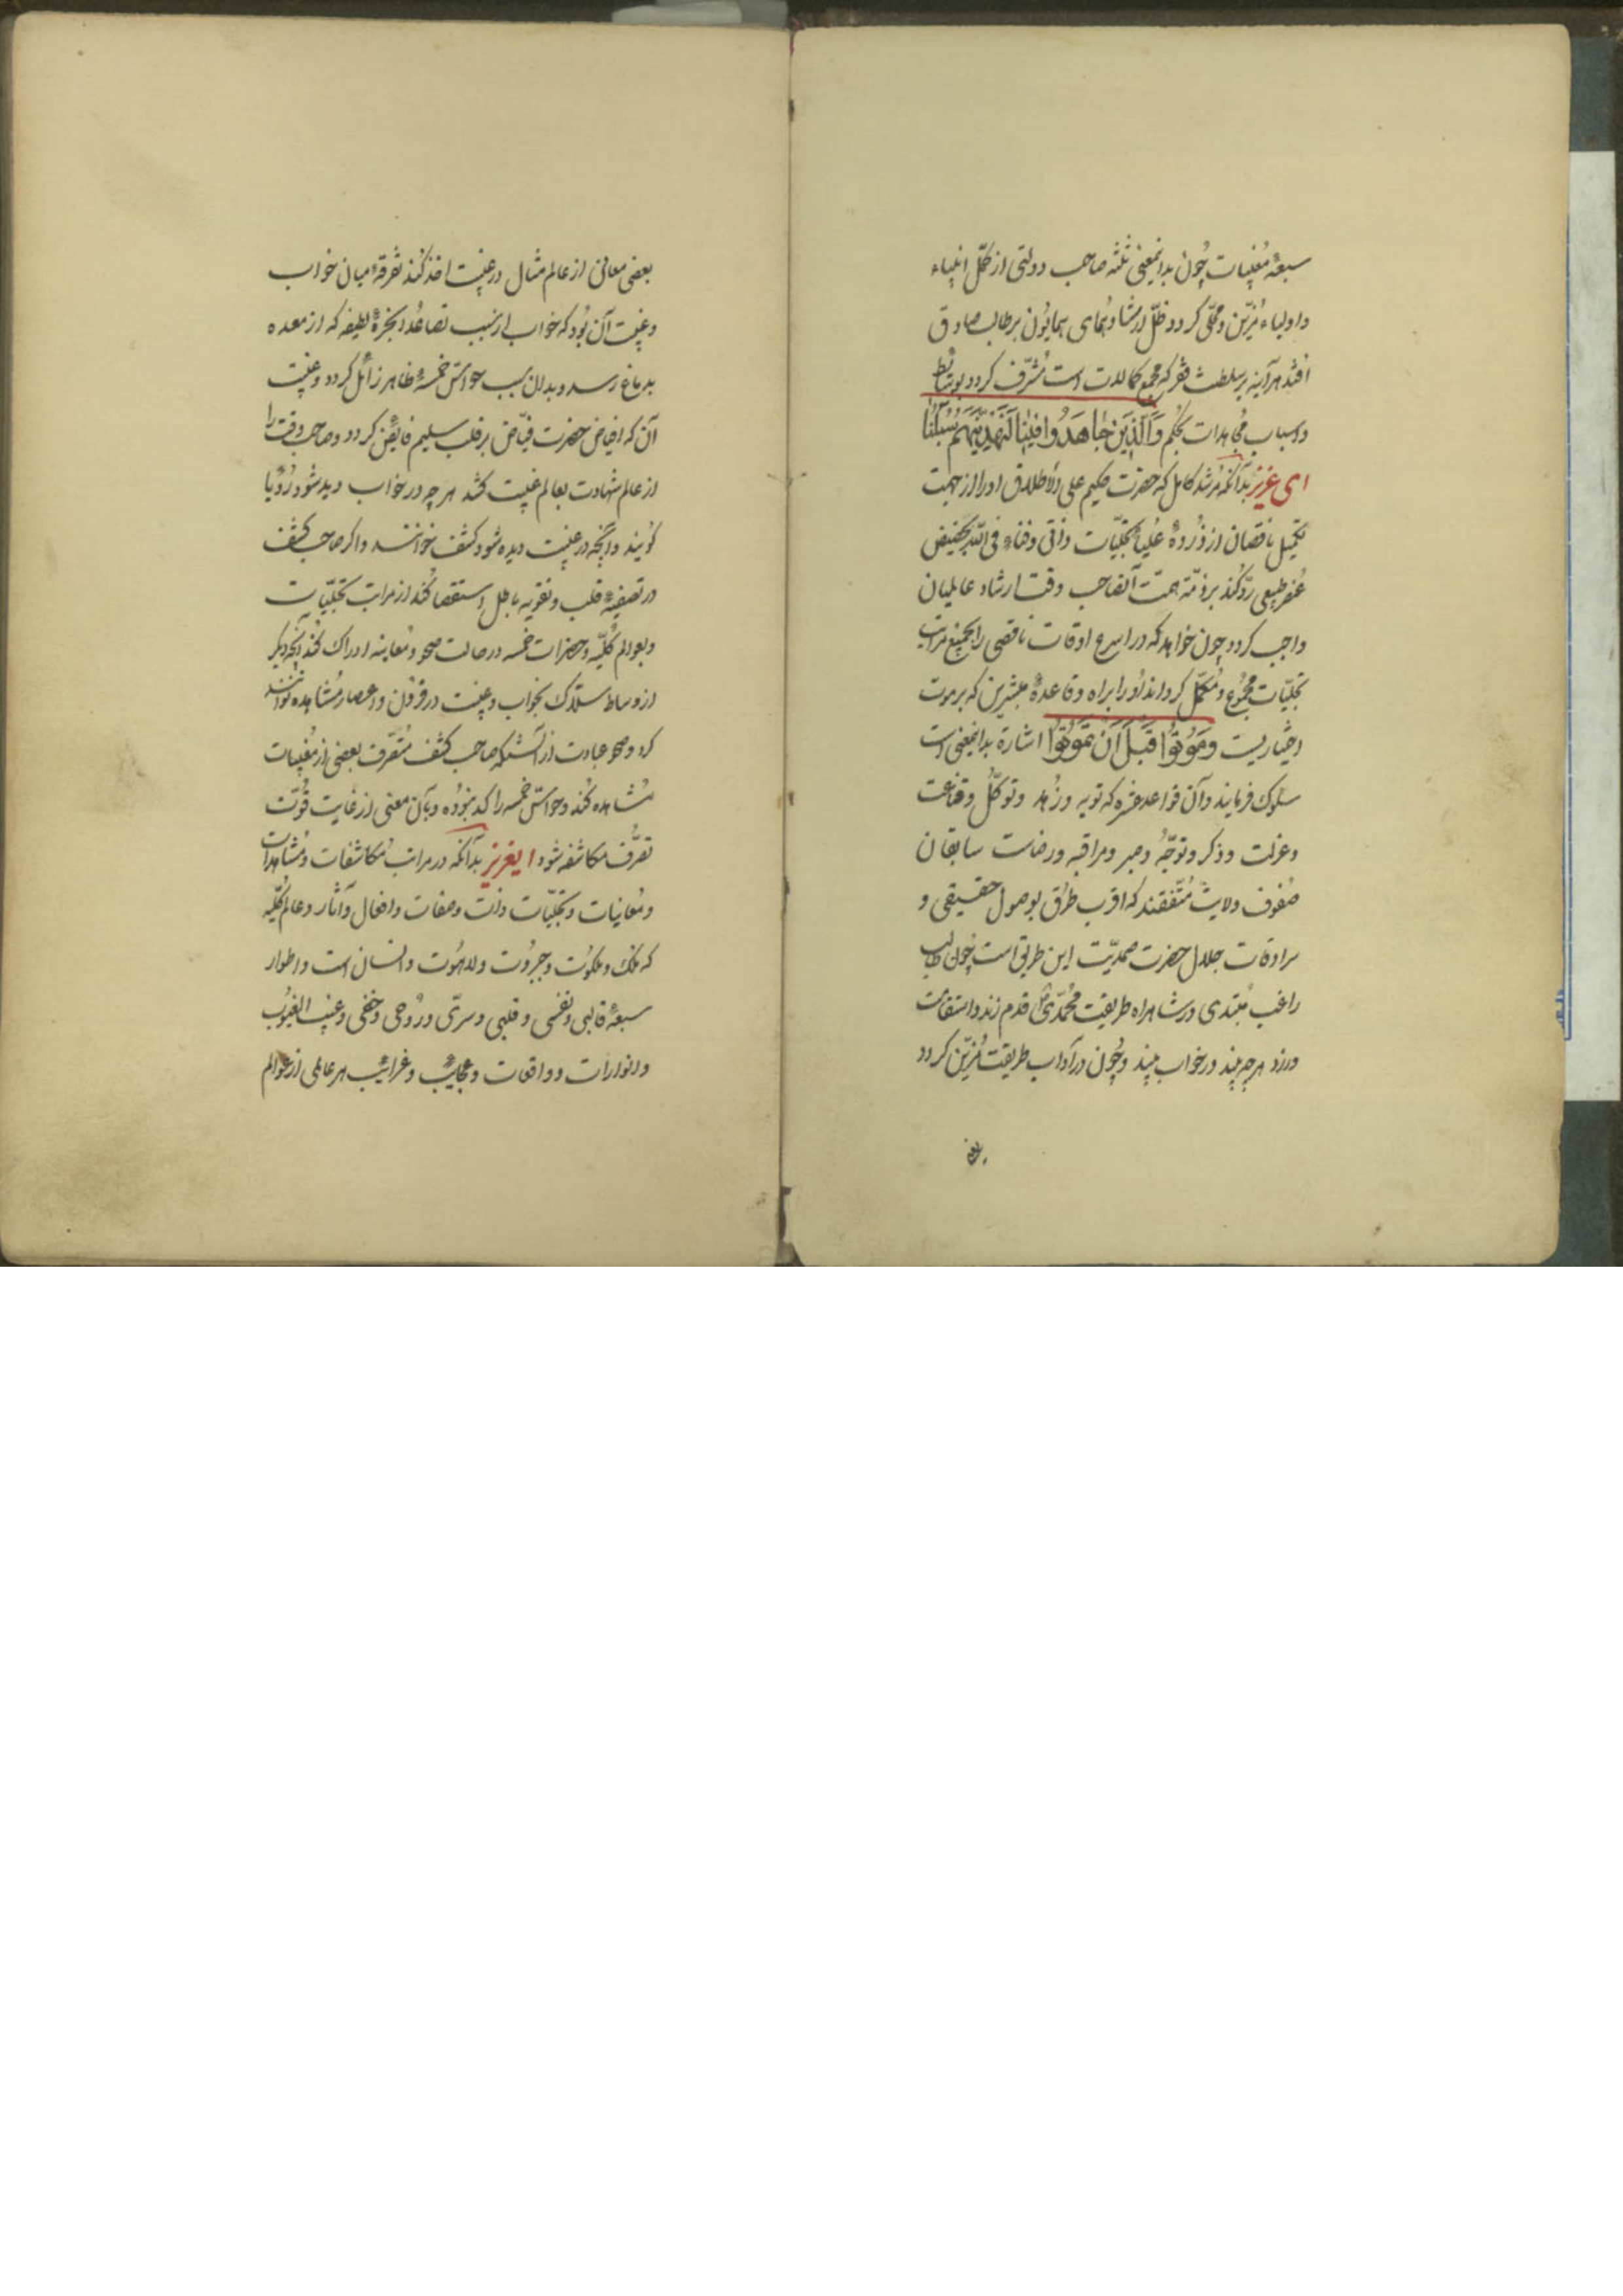 سبعهٔ مغیبات چون بدانمعنی ثلثه صاحب دولتی از کمّل انبیاء
و اولیاء مُزیّن و محلّی کردد ظلّ ارشاد و همای همایون بر طالب صادق
افتد هرآینه بر سلطنت فقر که مجمع کمالات است مُشرّف کردد بوسائط
و اسباب مُجاهدات بحکم وَالَّذینَ جٰاهَدُوا فینٰا لَنَهْدِیَنَّهُمْ سُبُلَنٰا
ای عزیز بدآنکه مُرشد کامل که حضرت حکیم علی الاطلاق او را از جهت
تکمیل ناقصان از ذُروهٔ عُلیاء تجلیّات ذاتی و فناء فی اللّه بحضیض
عُنصر طبیعی ردّ کُند بر ذمّهٔ همّت آنصاحب وقت ارشاد عالمیان
واجب کردد چون خواهد که در اسرع اوقات ناقصی را بجمیع مراتب
تجلیّات مجموع و مُکمّل کرداند او را براه و قاعدهٔ عشرین که بر موت
اختیاریست وَمُوتُوا قَبْلَ اَنْ تَمُوتُوا اشارة بدانمعنی است
سلوک فرمایند و آن قواعد عشره که توبه و زُهد و توکّل و قناعت
و عزلت و ذکر و توجّه و صبر و مراقبه و رضاست سابقان
صُفوف ولایت مُتّفقند که اقرب طُرُق بوصول حقیقی و
سرادقات جلال حضرت صمدیّت این طریق است چون طالب
راغب مُبتدی در شاهراه طریقت مُحمّدی قدم زند و استقامت
ورزد هرچه بیند در خواب بیند و چُون در آداب طریقت مُزیّن کردد
بعضی
بعضی معانی از عالم مثال در غیبت اخذ کُند تفرقهٔ میان خواب
و غیبت آن بُود که خواب از سبب تصاعُد ابخرهٔ لطیفه که از معده
بدماغ رسد و بدان سبب حواسّ خمسهٔ ظاهر زائل کردد و غیبت
آن که افیاض حضرت فیّاض بر قلب سلیم فایض کردد و صاحب وقت را
از عالم شهادت بعالم غیبت کشد هر چه در خواب دیده شود رُؤیا
کویند و آنچه در غیبت دیده شود کشف خوانند و اکر صاحب کشف
در تصفیهٔ قلب و تقویه باطل استقصا کُند از مراتب تجلیّات
و بعوالم کُلیّه و حضرات خمسه در حالت صحو و مُعاینه ادراک کُند آنچه دیکر
از وساط سلاک بخواب و غیبت در قرون و اعصار مُشاهده توانند
کرد و صحو عبادت از آنست که صاحب کشف مُتصرّف بعضی از مُغیبات
مُشاهده کُند و حواسّ خمسه راکد نبوده و بآن معنی از غایت قُوّت
تصرُّف مکاشفه شود ایعزیز بدآنکه در مراتب مُکاشفات و مُشاهدات
و مُعاینات و تجلیّات ذات و صفات و افعال و آثار و عالم کُلّیه
که ملک و ملکوت و جبروت و لاهُوت و انسان است و اطوار
سبعهٔ قالبی و نفسی و قلبی و سرّی و رُوحی و خفی و غیب الغیُوب
و انوارات و واقعات و عجایب و غرائب هر عالمی از عوالم